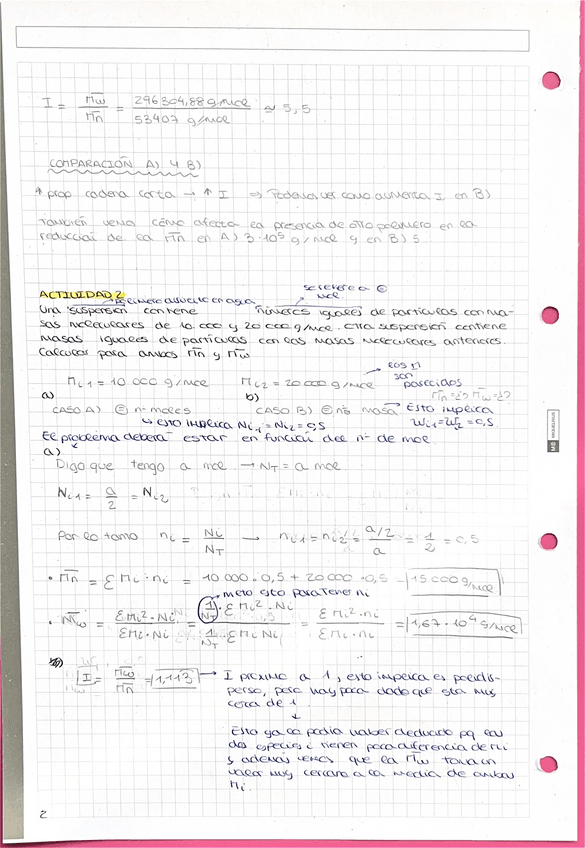 I = M̄w / M̄n = 296304,88 g/mol / 53407 g/mol ≃ 5,5
COMPARACIÓN A) Y B)
↑ prop cadena corta → ↑ I ⇒ Podemos ver como aumenta I en B)
También vemos cómo afecta la presencia de otro polímero en la
reducción de la M̄n en A) 3·10⁵ g/mol y en B) 5
se refiere a =
mol
ACTIVIDAD 2 → polímero disuelto en agua
Una suspensión contiene números iguales de partículas con ma-
sas moleculares de 10 000 y 20 000 g/mol. Otra suspensión contiene
masas iguales de partículas con las masas moleculares anteriores.
Calcular para ambos M̄n y M̄w
los M
son
parecidos
Mi1 = 10 000 g/mol Mi2 = 20 000 g/mol
M̄n=¿? M̄w=¿?
a) b)
CASO A) = nº moles CASO B) = masa → Esto implica
↳ esto implica Ni1 = Ni2 = 0,5 Wi1 = Wi2 = 0,5
El problema deberá estar en función del nº de mol
a)
Digo que tengo a mol → NT = a mol
Ni1 = a/2 = Ni2
Por lo tanto ni = Ni/NT → ni1 = ni2 = (a/2)/a = 1/2 = 0,5
• M̄n = Σ Mi · ni = 10 000 · 0,5 + 20 000 · 0,5 = 15 000 g/mol
→ meto esto para tener ni
• M̄w = Σ Mi² · Ni / Σ Mi · Ni = (1/NT · Σ Mi² · Ni) / (1/NT · Σ Mi Ni) = Σ Mi² · ni / Σ Mi · ni = 1,67 · 10⁴ g/mol
I = M̄w / M̄n = 1,113 → I próximo a 1, esto implica es polidis-
perso, pero muy poco dado que sta muy
cerca de 1.
↓
Esto ya lo podía haber deducido pq las
dos especies i tienen poca diferencia de Mi
y además vemos que la M̄w toma un
valor muy cercano a la media de ambas
Mi.
2